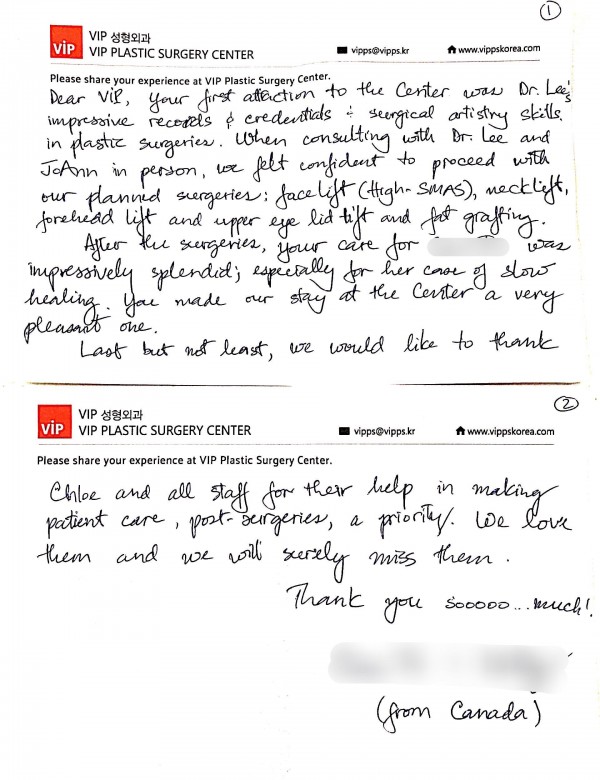 ①
VIP 성형외과
VIP PLASTIC SURGERY CENTER
vipps@vipps.kr
www.vippskorea.com
ViP
Please share your experience at VIP Plastic Surgery Center.
Dear VIP, your first attaction to the Center was Dr. Lee's
impressive records & credentials & surgical artistry skills
in plastic surgeries. When consulting with Dr. Lee and
JoAnn in person, we felt confident to proceed with
our planned surgeries: facelift (High-SMAS), necklift,
forehead lift and upper eye lid lift and fat grafting.
After the surgeries, your care for was
impressively splendid; especially for her case of slow
healing. You made our stay at the Center a very
pleasant one.
Last but not least, we would like to thank
②
VIP 성형외과
VIP PLASTIC SURGERY CENTER
vipps@vipps.kr
www.vippskorea.com
ViP
Please share your experience at VIP Plastic Surgery Center.
Chloe and all staff for their help in making
patient care, post-surgeries, a priority. We love
them and we will surely miss them.
Thank you sooooo...much!
(from Canada)